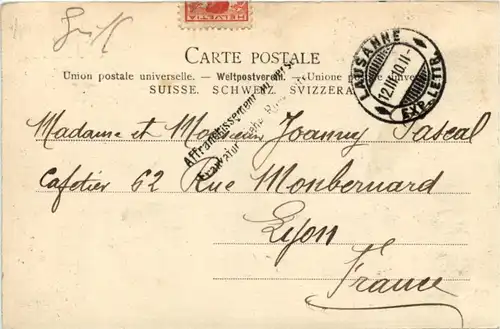 HELVETIA
CARTE POSTALE
Union postale universelle. — Weltpostverein. — Unione postale universale
SUISSE. SCHWEIZ. SVIZZERA.
LAUSANNE
12.II.00.11-
EXP. LETTR.
Affranchissement au verso.
Frankatur siehe Rück
Madame et Monsieur Joanny Pascal
Cafetier 62 Rue Monbernard
Lyon
France